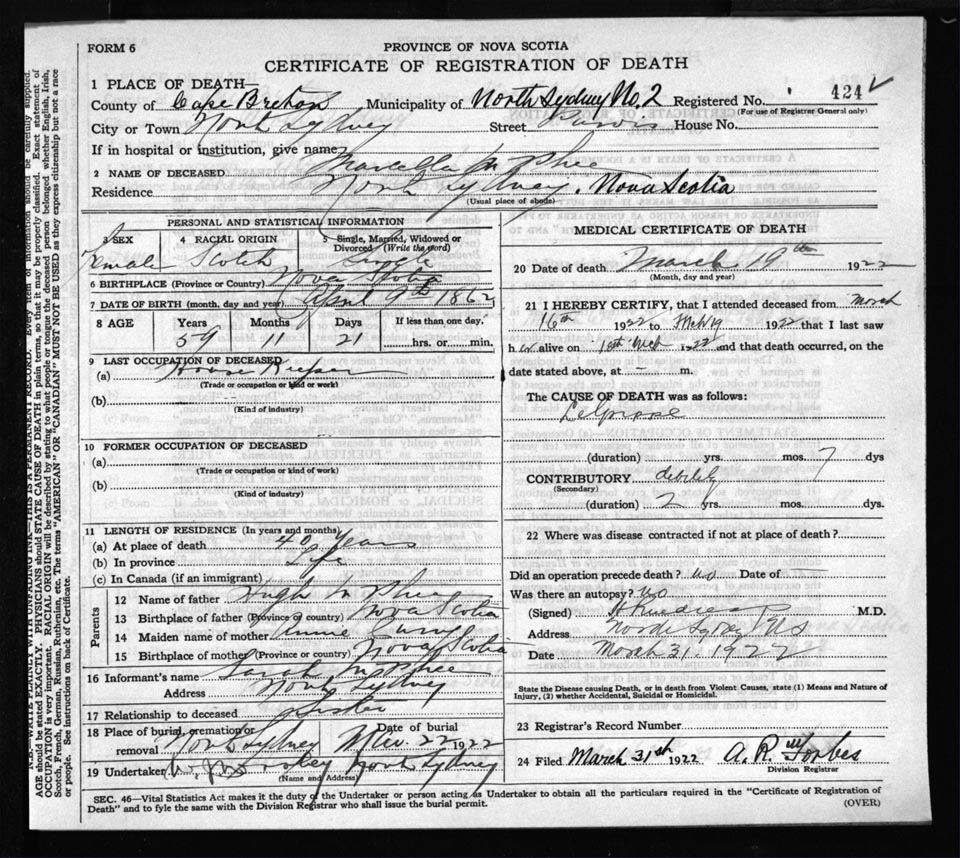 FORM 6
PROVINCE OF NOVA SCOTIA
CERTIFICATE OF REGISTRATION OF DEATH
1 PLACE OF DEATH—
County of Cape Breton Municipality of North Sydney No. 2 Registered No. 424
(For use of Registrar General only)
City or Town North Sydney Street House No.
If in hospital or institution, give name
2 NAME OF DECEASED Marcella McPhee
Residence North Sydney. Nova Scotia
(Usual place of abode)
PERSONAL AND STATISTICAL INFORMATION
3 SEX 4 RACIAL ORIGIN 5 Single, Married, Widowed or Divorced (Write the word)
female Scotch Single
6 BIRTHPLACE (Province or Country) Nova Scotia
7 DATE OF BIRTH (month, day and year) April 9th 1862
8 AGE Years Months Days If less than one day,
59 11 21 hrs. or min.
9 LAST OCCUPATION OF DECEASED
(a) House Keeper
(Trade or occupation or kind of work)
(b)
(Kind of industry)
10 FORMER OCCUPATION OF DECEASED
(a)
(Trade or occupation or kind of work)
(b)
(Kind of industry)
11 LENGTH OF RESIDENCE (In years and months)
(a) At place of death 40 Years
(b) In province Life
(c) In Canada (if an immigrant)
Parents
12 Name of father Hugh McPhee
13 Birthplace of father (Province or country) Nova Scotia
14 Maiden name of mother Annie
15 Birthplace of mother (Province or country) Nova Scotia
16 Informant's name Sarah McPhee
Address North Sydney
17 Relationship to deceased Sister
18 Place of burial, cremation or removal North Sydney Date of burial 22 1922
19 Undertaker North Sydney
(Name and Address)
MEDICAL CERTIFICATE OF DEATH
20 Date of death March 19th 1922
(Month, day and year)
21 I HEREBY CERTIFY, that I attended deceased from March
16th 1922 to Mch 19 1922 that I last saw
her alive on 1922 and that death occurred, on the
date stated above, at — m.
The CAUSE OF DEATH was as follows:
(duration) yrs. mos. 7 dys
CONTRIBUTORY debility
(Secondary)
(duration) 2 yrs. mos. dys.
22 Where was disease contracted if not at place of death?
Did an operation precede death? no Date of —
Was there an autopsy? no
(Signed) M.D.
Address North Sydney NS
Date March 31. 1922
State the Disease causing Death, or in death from Violent Causes, state (1) Means and Nature of
Injury, (2) whether Accidental, Suicidal or Homicidal.
23 Registrar's Record Number
24 Filed March 31st 1922 A. R. Forbes
Division Registrar
SEC. 46—Vital Statistics Act makes it the duty of the Undertaker or person acting as Undertaker to obtain all the particulars required in the "Certificate of Registration of
Death" and to fyle the same with the Division Registrar who shall issue the burial permit.
(OVER)
N.B.—WRITE PLAINLY WITH UNFADING INK—THIS IS A PERMANENT RECORD. Every item of information should be carefully supplied.
AGE should be stated EXACTLY. PHYSICIANS should STATE CAUSE OF DEATH in plain terms, so that it may be properly classified. Exact statement of
OCCUPATION is very important. RACIAL ORIGIN will be described by stating to what people or tongue the deceased person belonged whether English, Irish,
Scotch, French, German, Russian, Ruthenian, etc. The terms "AMERICAN" OR "CANADIAN" MUST NOT BE USED as they express citizenship but not a race
or people. See instructions on back of Certificate.